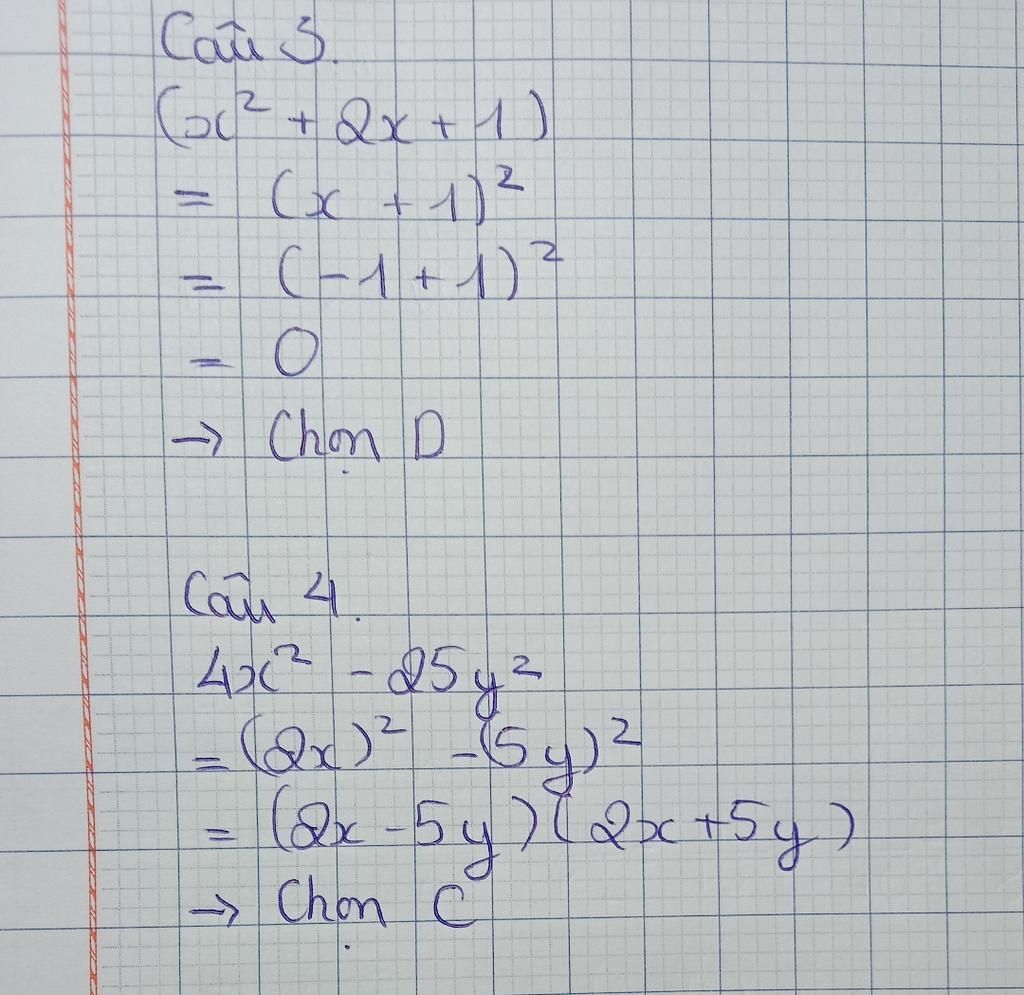 Câu 3.
(x² + 2x + 1)
= (x + 1)²
= (-1 + 1)²
= 0
→ Chọn D
Câu 4.
4x² - 25y²
= (2x)² - (5y)²
= (2x - 5y)(2x + 5y)
→ Chọn C